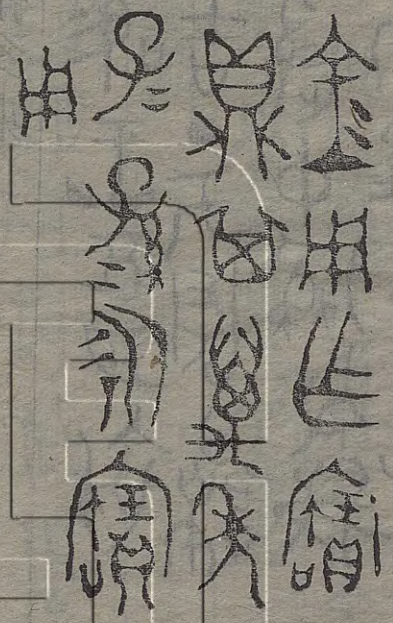 金用作寶
鼎其萬年
子=孫=永寶
用